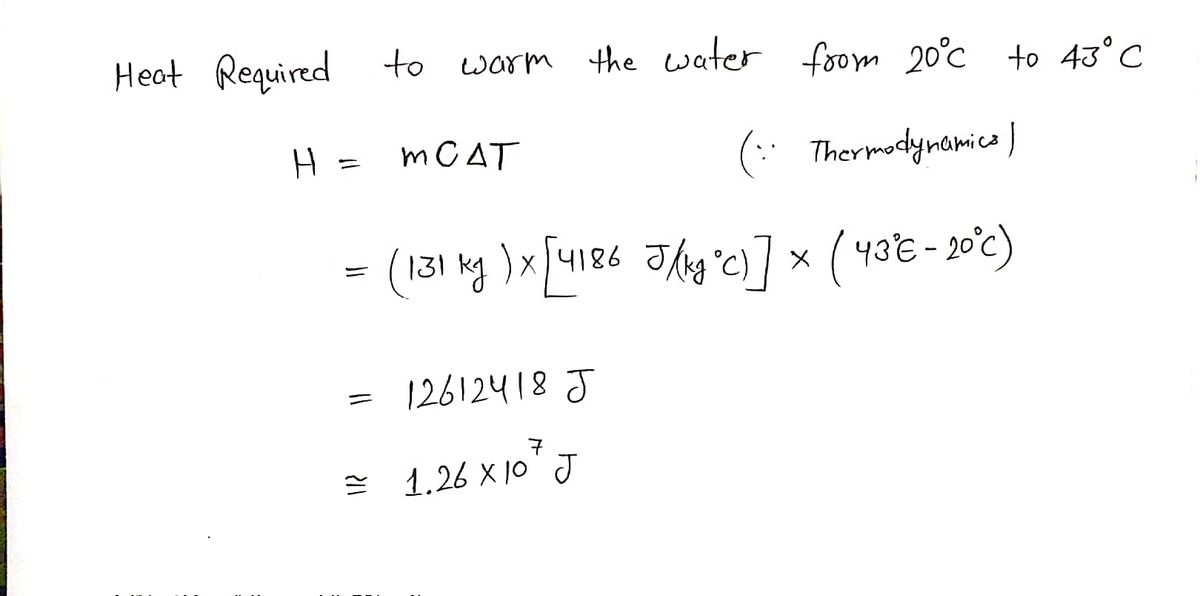 Heat Required to warm the water from 20°C to 43°C
H = mCΔT (∵ Thermodynamics)
= (131 kg) × [4186 J/(kg °C)] × (43°C - 20°C)
= 12612418 J
≅ 1.26 × 10⁷ J